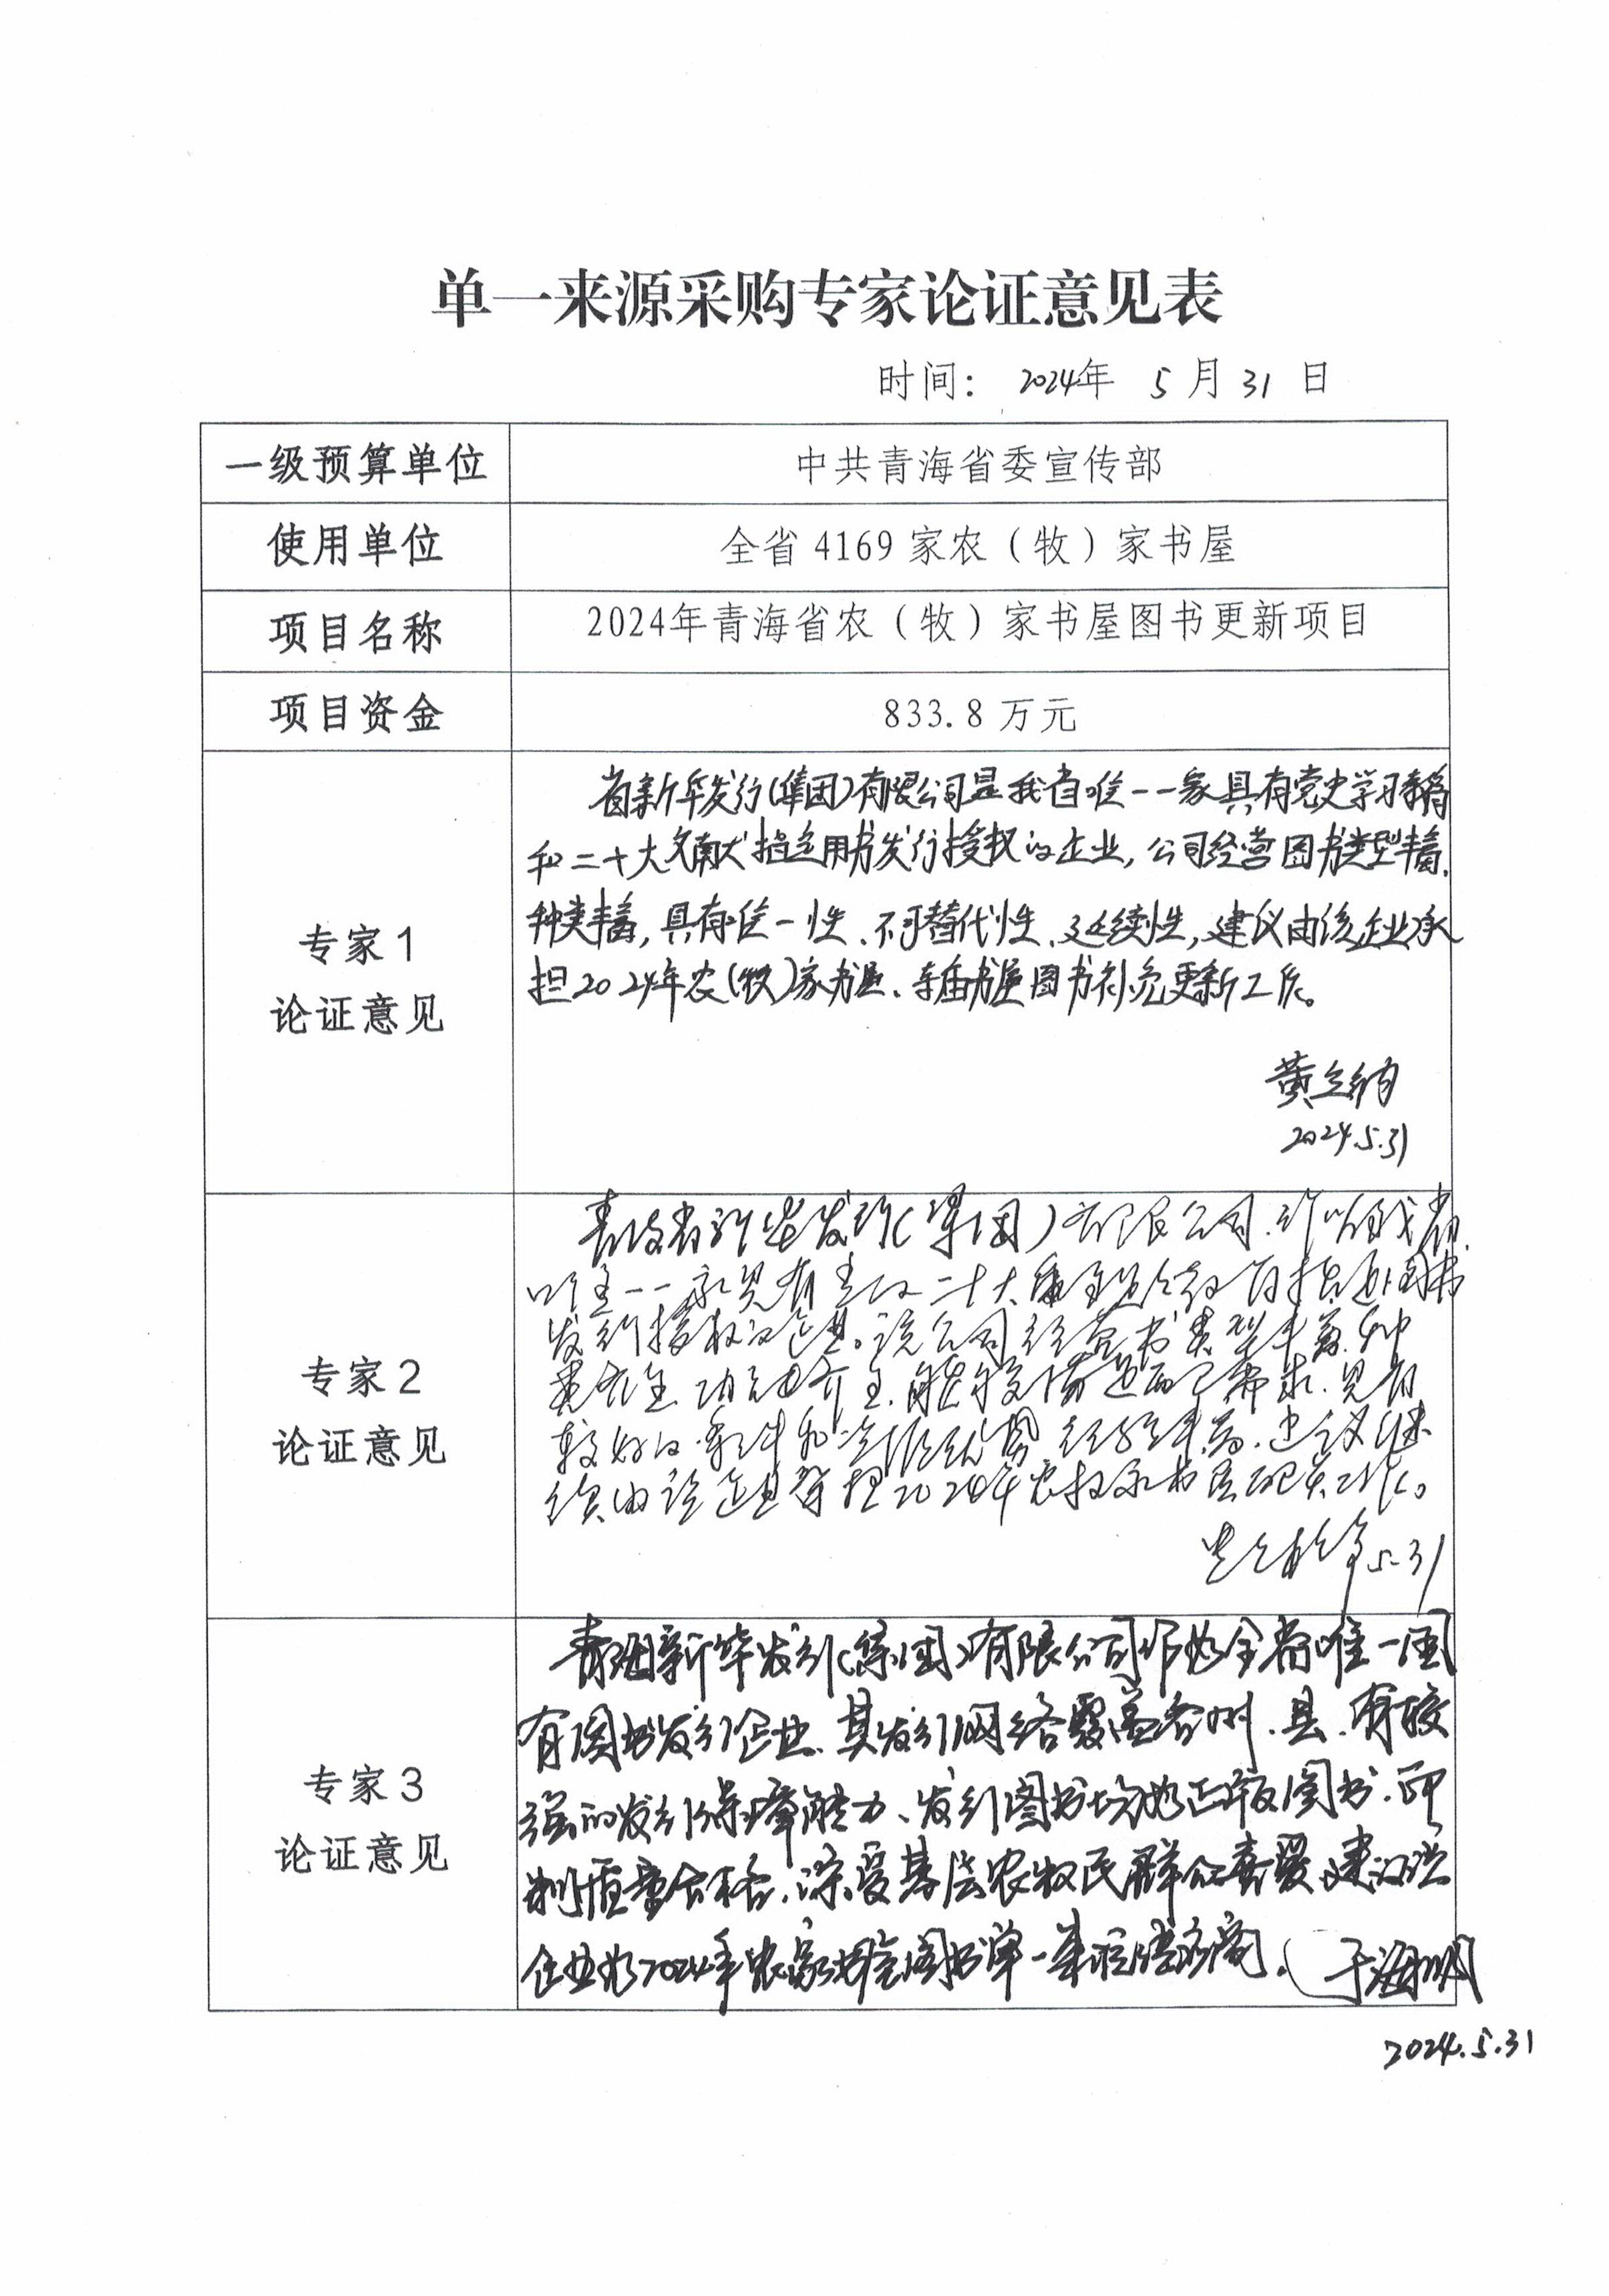 单一来源采购专家论证意见表
时间： 2024年 5 月 31 日
一级预算单位 中共青海省委宣传部
使用单位 全省 4169 家农（牧）家书屋
项目名称 2024年青海省农（牧）家书屋图书更新项目
项目资金 833.8 万元
专家1
论证意见
省新华发行(集团)有限公司是我省唯一一家具有党史学习教育
和二十大文献指定用书发行授权的企业,公司经营图书类型丰富、
种类丰富,具有唯一性、不可替代性、延续性,建议由该企业承
担2024年农(牧)家书屋、寺庙书屋图书补充更新工作。
2024.5.31
专家2
论证意见
青海省新华发行(集团)有限公司,作为我省
唯一一家具有 二十大 指定图书
发行授权的企业。该公司经营书类型丰富、种
类齐全、功能齐全,能够 需求,具有
较好的条件和 优势,经验丰富,建议继
续由该企业承担2024年农牧家书屋配书工作。
5.31
专家3
论证意见
青海新华发行(集团)有限公司作为全省唯一国
有图书发行企业、其发行网络覆盖各州、县、有较
强的发行保障能力、发行图书均为正版图书、印
制质量合格、深受基层农牧民群众喜爱,建议该
企业为2024年农家书屋图书单一来源供应商。
于海明
2024.5.31